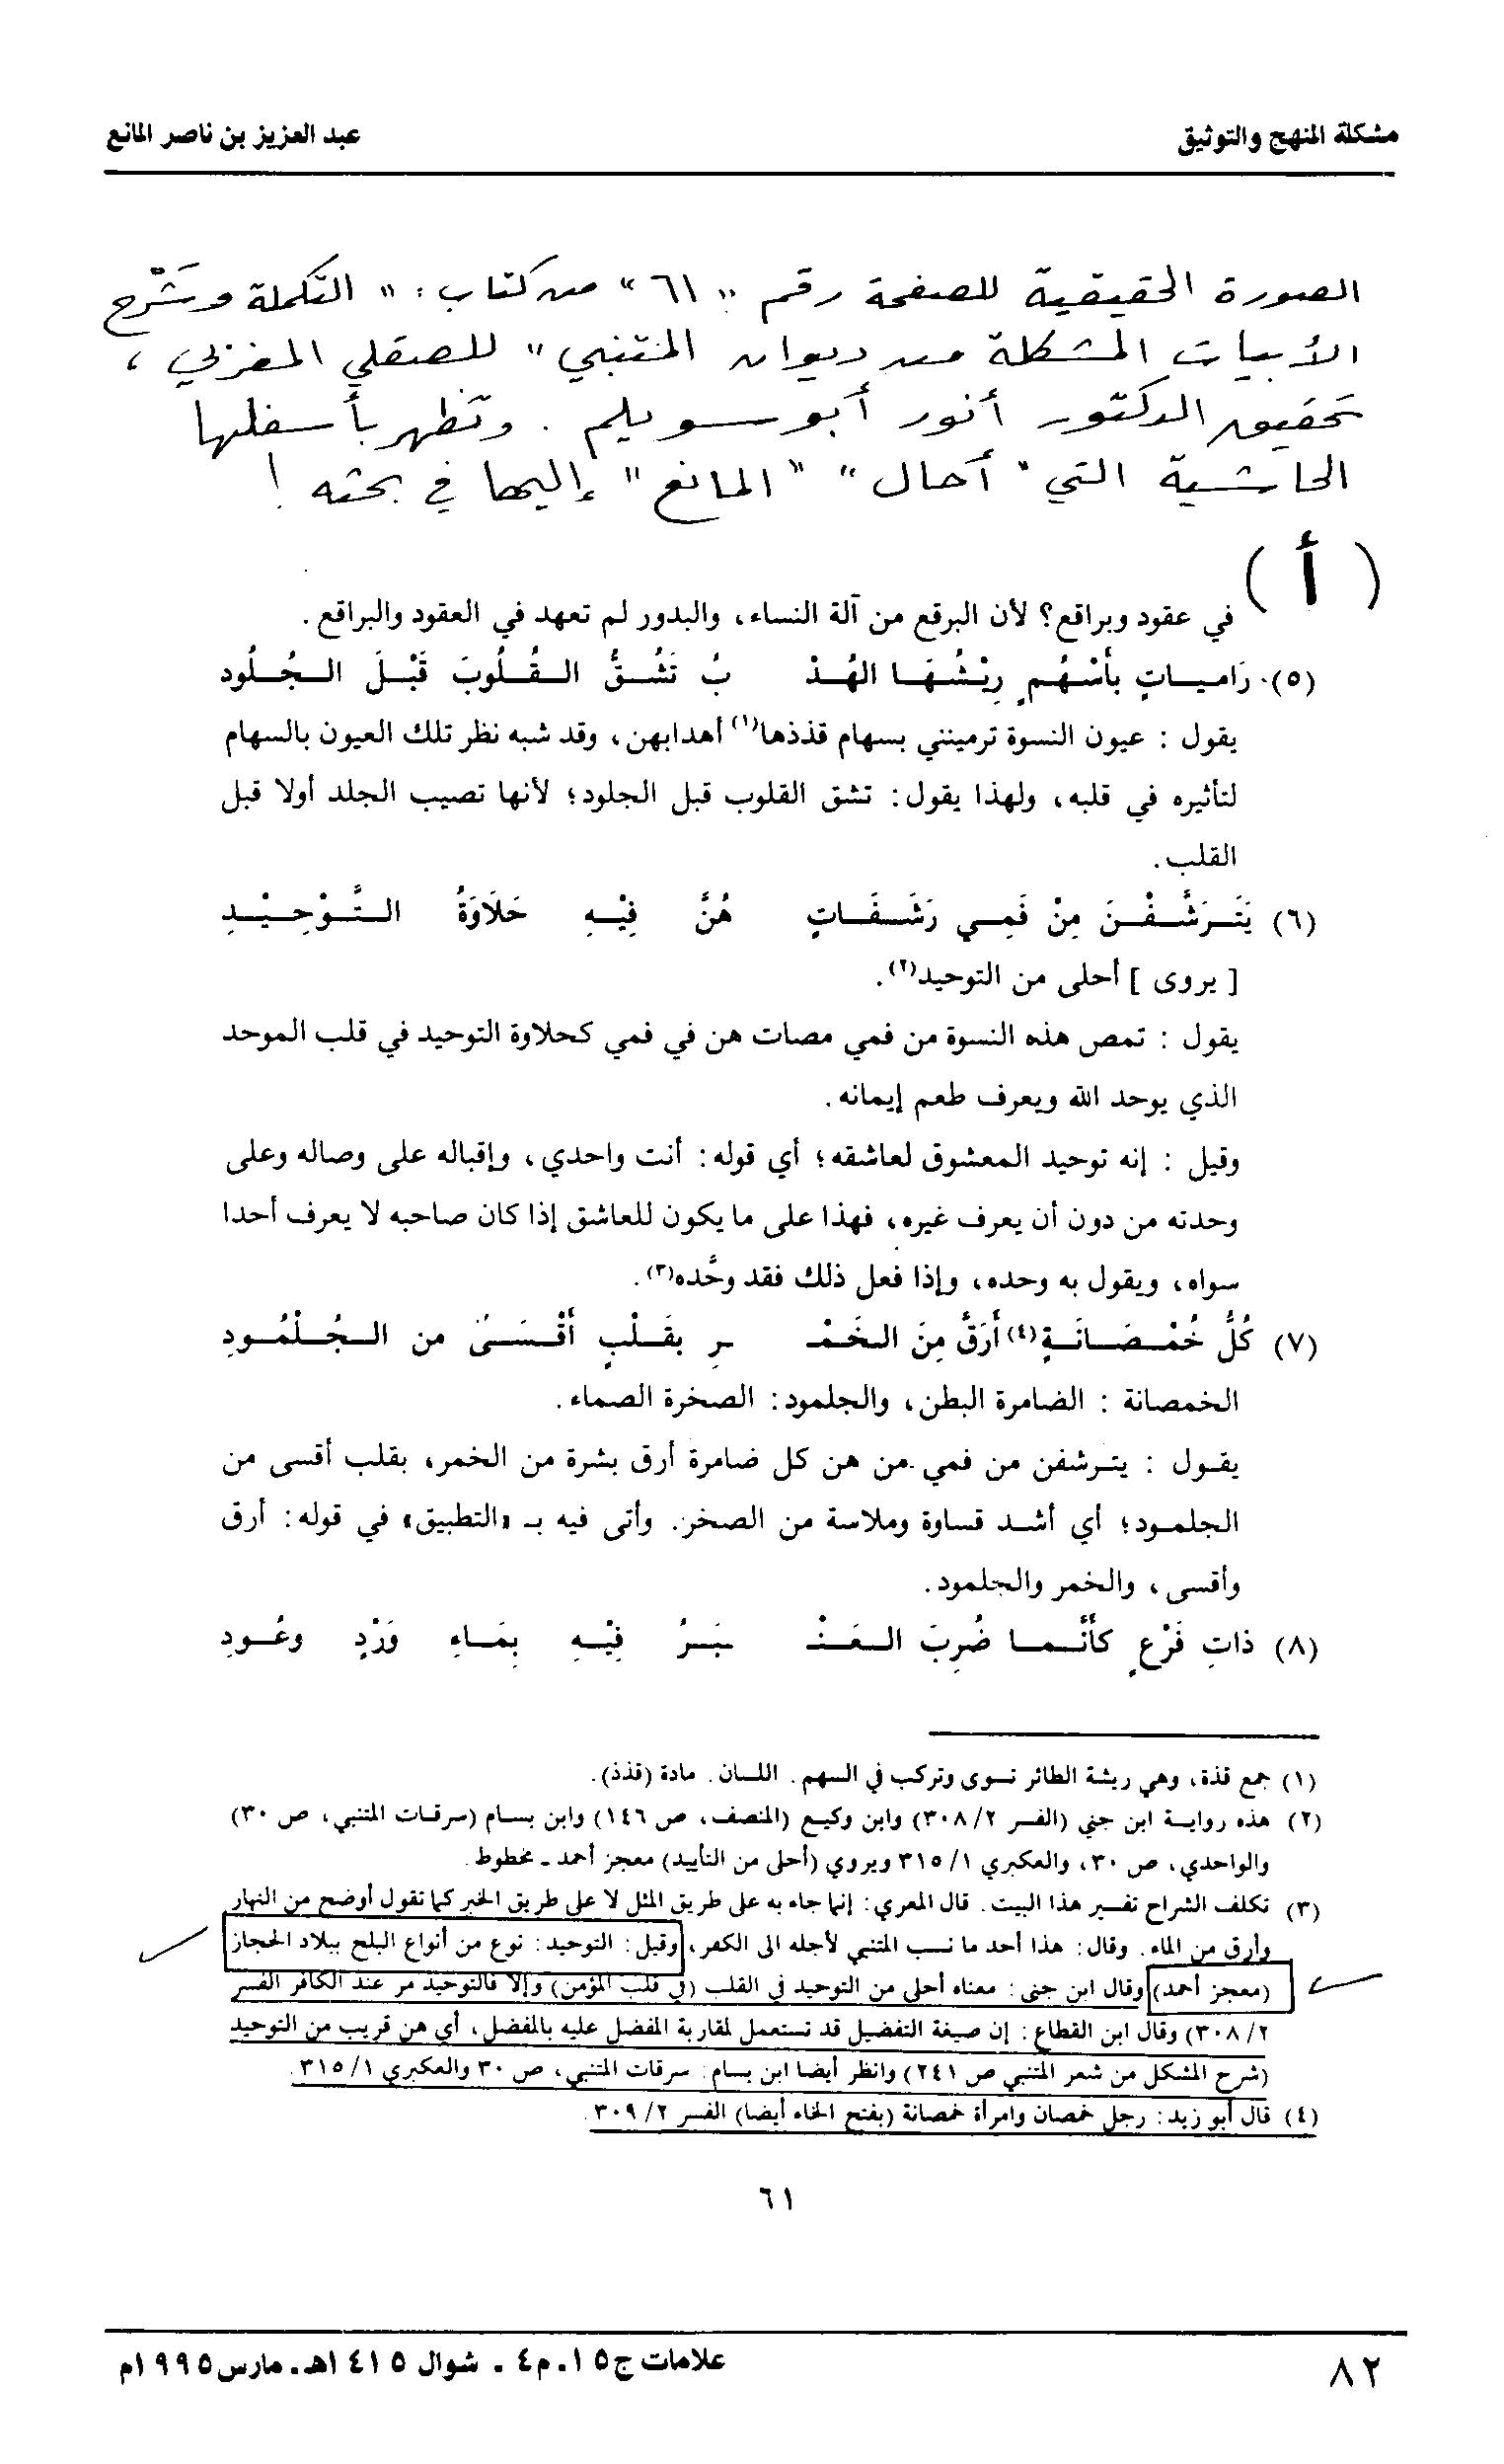 مشكلة المنهج والتوثيق
عبد العزيز بن ناصر المانع
الصورة الحقيقية للصفحة رقم "٦١" من كتاب: "التكملة وشَرْح
الأبيات المشكلة من ديوان المتنبي" للصقلي المغربي،
تحقيق الدكتور أنور أبو سويلم. وتظهر بأسفلها
الحاشية التي "أحال" "المانع" إليها في بحثه!
(أ)
في عقود وبراقع؟ لأن البرقع من آلة النساء، والبدور لم تعهد في العقود والبراقع.
(٥) رَاميـاتٍ بأَسْهُمٍ رِيْشُهَـا الهُدْ بُ تَشُـقُّ القُـلُوبَ قَبْـلَ الـجُـلُود
يقول : عيون النسوة ترمينني بسهام قذذها(١) أهدابهن، وقد شبه نظر تلك العيون بالسهام
لتأثيره في قلبه، ولهذا يقول: تشق القلوب قبل الجلود؛ لأنها تصيب الجلد أولا قبل
القلب.
(٦) يَتَـرَشَّـفْـنَ مِنْ فَمِـي رَشَـفَـاتٍ هُنَّ فِيْـهِ حَلَاوَةُ الـتَّـوْحِـيْـدِ
[ يروى ] أحلى من التوحيد(٢).
يقول : تمص هذه النسوة من فمي مصات هن في فمي كحلاوة التوحيد في قلب الموحد
الذي يوحد الله ويعرف طعم إيمانه.
وقيل : إنه توحيد المعشوق لعاشقه؛ أي قوله: أنت واحدي، وإقباله على وصاله وعلى
وحدته من دون أن يعرف غيره، فهذا على ما يكون للعاشق إذا كان صاحبه لا يعرف أحدا
سواه، ويقول به وحده، وإذا فعل ذلك فقد وحَّده(٣).
(٧) كُلُّ خُمْـصَـانَـةٍ(٤) أَرَقُّ مِنَ الـخَـمْـ ـرِ بِقَـلْبٍ أَقْـسَـىٰ من الـجُـلْمُـودِ
الخمصانة : الضامرة البطن، والجلمود: الصخرة الصماء.
يقـول : يتـرشفن من فمي من هن كل ضامرة أرق بشرة من الخمر، بقلب أقسى من
الجلمـود؛ أي أشـد قساوة وملاسة من الصخر. وأتى فيه بـ «التطبيق» في قوله: أرق
وأقسى، والخمر والجلمود.
(٨) ذاتِ فَرْعٍ كأَنَّـمـا ضُرِبَ الـعَـنْـ ـبَـرُ فِيْـهِ بِمَـاءِ وَرْدٍ وعُـودِ
(١) جمع قذة، وهي ريشة الطائر تسوى وتركب في السهم. اللسان. مادة (قذذ).
(٢) هذه روايـة ابن جني (الفسر ٢/ ٣٠٨) وابن وكيـع (المنصف، ص ١٤٦) وابن بسام (سرقـات المتنبي، ص ٣٠)
والواحدي، ص ٣٠، والعكبري ١/ ٣١٥ ويروي (أحلى من التأييد) معجز أحمد ـ مخطوط.
(٣) تكلف الشراح تفسير هذا البيت. قال المعري: إنما جاء به على طريق المثل لا على طريق الخبر كما تقول أوضح من النهار
وأرق من الماء. وقال: هذا أحد ما نسب المتنبي لأجله الى الكفر، وقيل: التوحيد: نوع من أنواع البلح ببلاد الحجاز
(معجز أحمد) وقال ابن جنى: معناه أحلى من التوحيد في القلب (في قلب المؤمن) وإلا فالتوحيد مر عند الكافر الفسر
٢/ ٣٠٨) وقال ابن القطاع: إن صيغة التفضيل قد تستعمل لمقاربة المفضل عليه بالمفضل، أي هن قريب من التوحيد
(شرح المشكل من شعر المتنبي ص ٢٤١) وانظر أيضا ابن بسام: سرقات المتنبي، ص ٣٠ والعكبري ١/ ٣١٥.
(٤) قال أبو زيد: رجل خمصان وامرأة خمصانة (بفتح الخاء أيضا) الفسر ٢/ ٣٠٩.
٦١
٨٢
علامات ج١٥.م٤. شوال ١٤١٥هـ. مارس١٩٩٥م